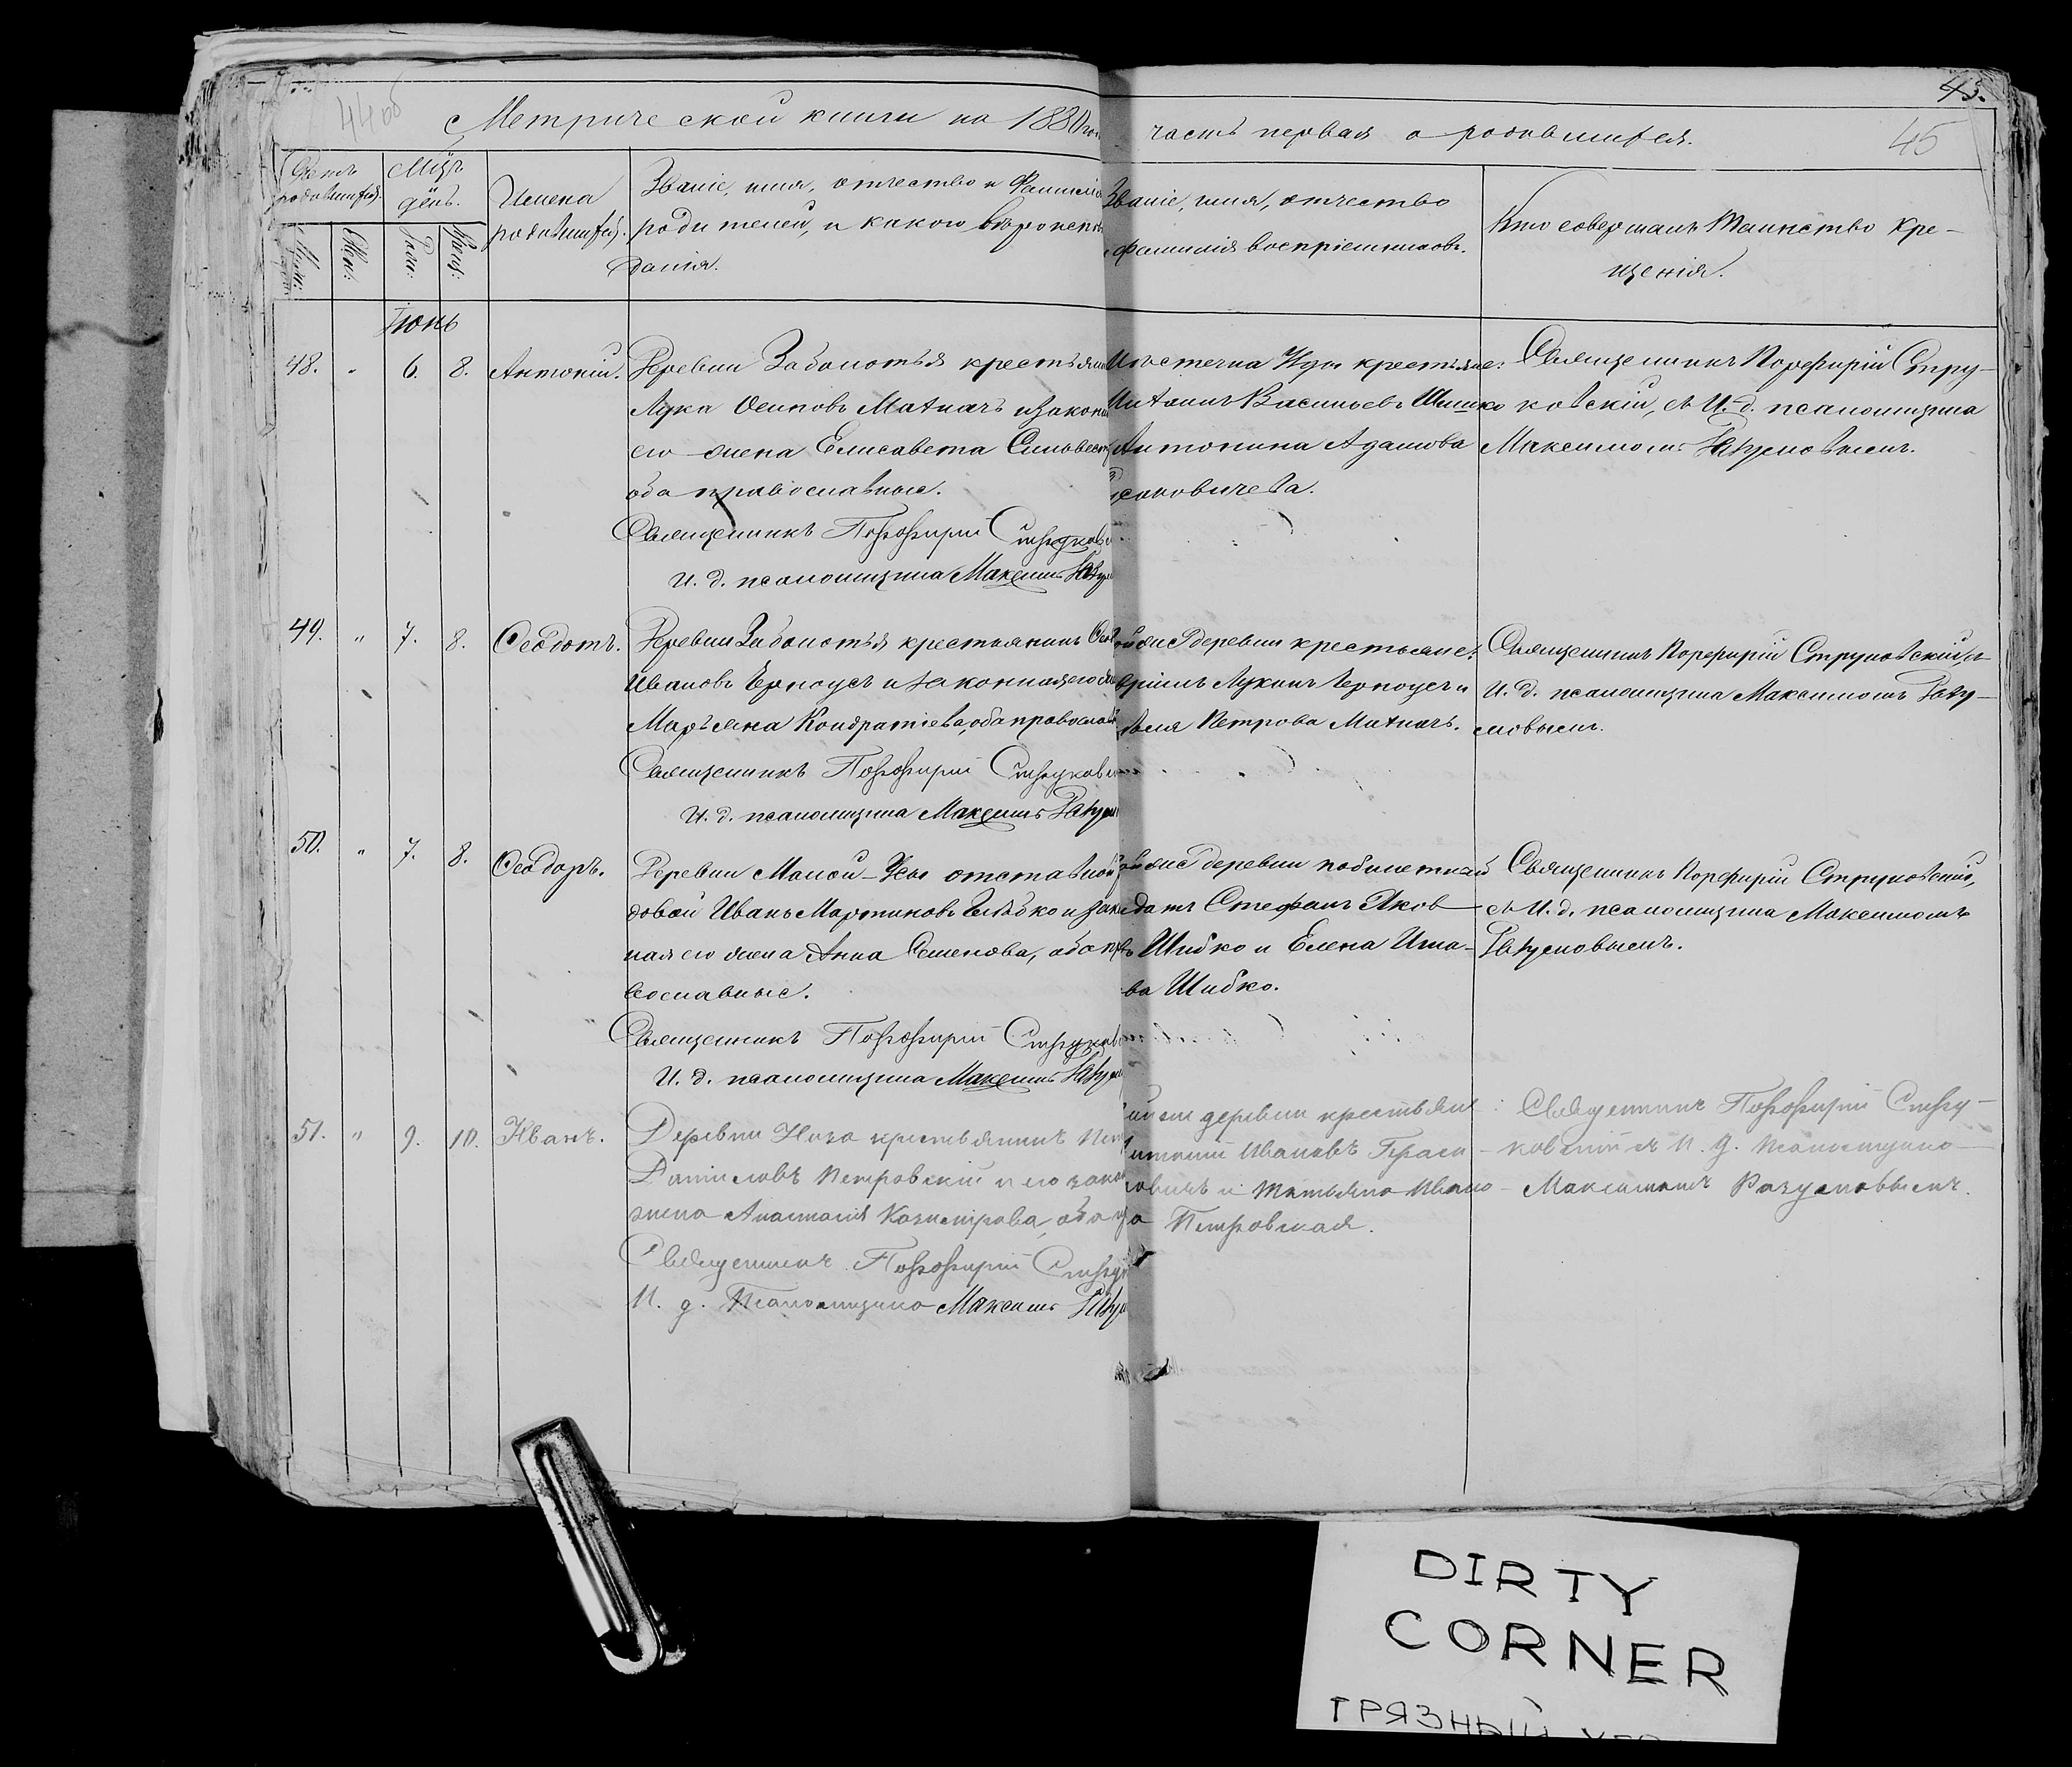 43.
44об
45
Метрической книги на 1880 год часть первая о родившихся.
Счетъ родившихся.
Мужс:
Жен:
Мцъ день.
Рожд:
Крещ:
Имена родившихся.
Званіе, имя, отчество и Фамилія
родителей, и какого вѣроиспов
данія.
Званіе, имя, отчество
фамилія воспріемниковъ.
Кто совершалъ Таинство Кре-
щенія.
Іюнь
48. " 6. 8. Антоній.
Деревни Заболотья крестьянин
Лука Осиповъ Маткачъ и закон
его жена Елисавета Сильвест
оба православные.
Священникъ Порфирій Струковс
И. д. псаломщика Максимъ Разум
Мѣстечка крестьяне:
Васильевъ Шишко
Антонина Адамова
Священникъ Порфирій Стру-
ковскій, съ И. д. псаломщика
Максимомъ Разумовымъ.
49. " 7. 8. Ѳеодотъ.
Деревни Заболотья крестьянинъ
Ивановъ Черноусъ и законная его
Марьяна Кондратіева, оба правосла
Священникъ Порфирій Струковс
И. д. псаломщика Максимъ Разум
деревни крестьяне:
Лукинъ Черноусъ и
Петрова Маткачъ.
Священникъ Порфирій Струковскій, съ
И. д. псаломщика Максимомъ Разу-
мовымъ.
50. " 7. 8. Ѳеодоръ.
Деревни Малой- отставной
довой Иванъ Мартиновъ и зак
ная его жена Анна Семенова, оба пра
вославные.
Священникъ Порфирій Струковс
И. д. псаломщика Максимъ Разум
деревни побилетный
датъ Стефанъ Яков
въ Шибко и Елена
ва Шибко.
Священникъ Порфирій Струковскій,
съ И. д. псаломщика Максимомъ
Разумовымъ.
51. " 9. 10. Иванъ.
Деревни крестьянинъ
Даниловъ Петровскій и его закон
жена Анастасія Казимірова, оба
Священникъ Порфирій Струк
И. д. Псаломщика Максимъ Разум
деревни крестьян:
Ивановъ Гераси-
мовичъ и Татьяна Ивано-
ва Петровская.
Священникъ Порфирій Стру-
ковскій съ И. д. Псаломщика
Максимомъ Разумовымъ.
DIRTY
CORNER
ГРЯЗНЫЙ